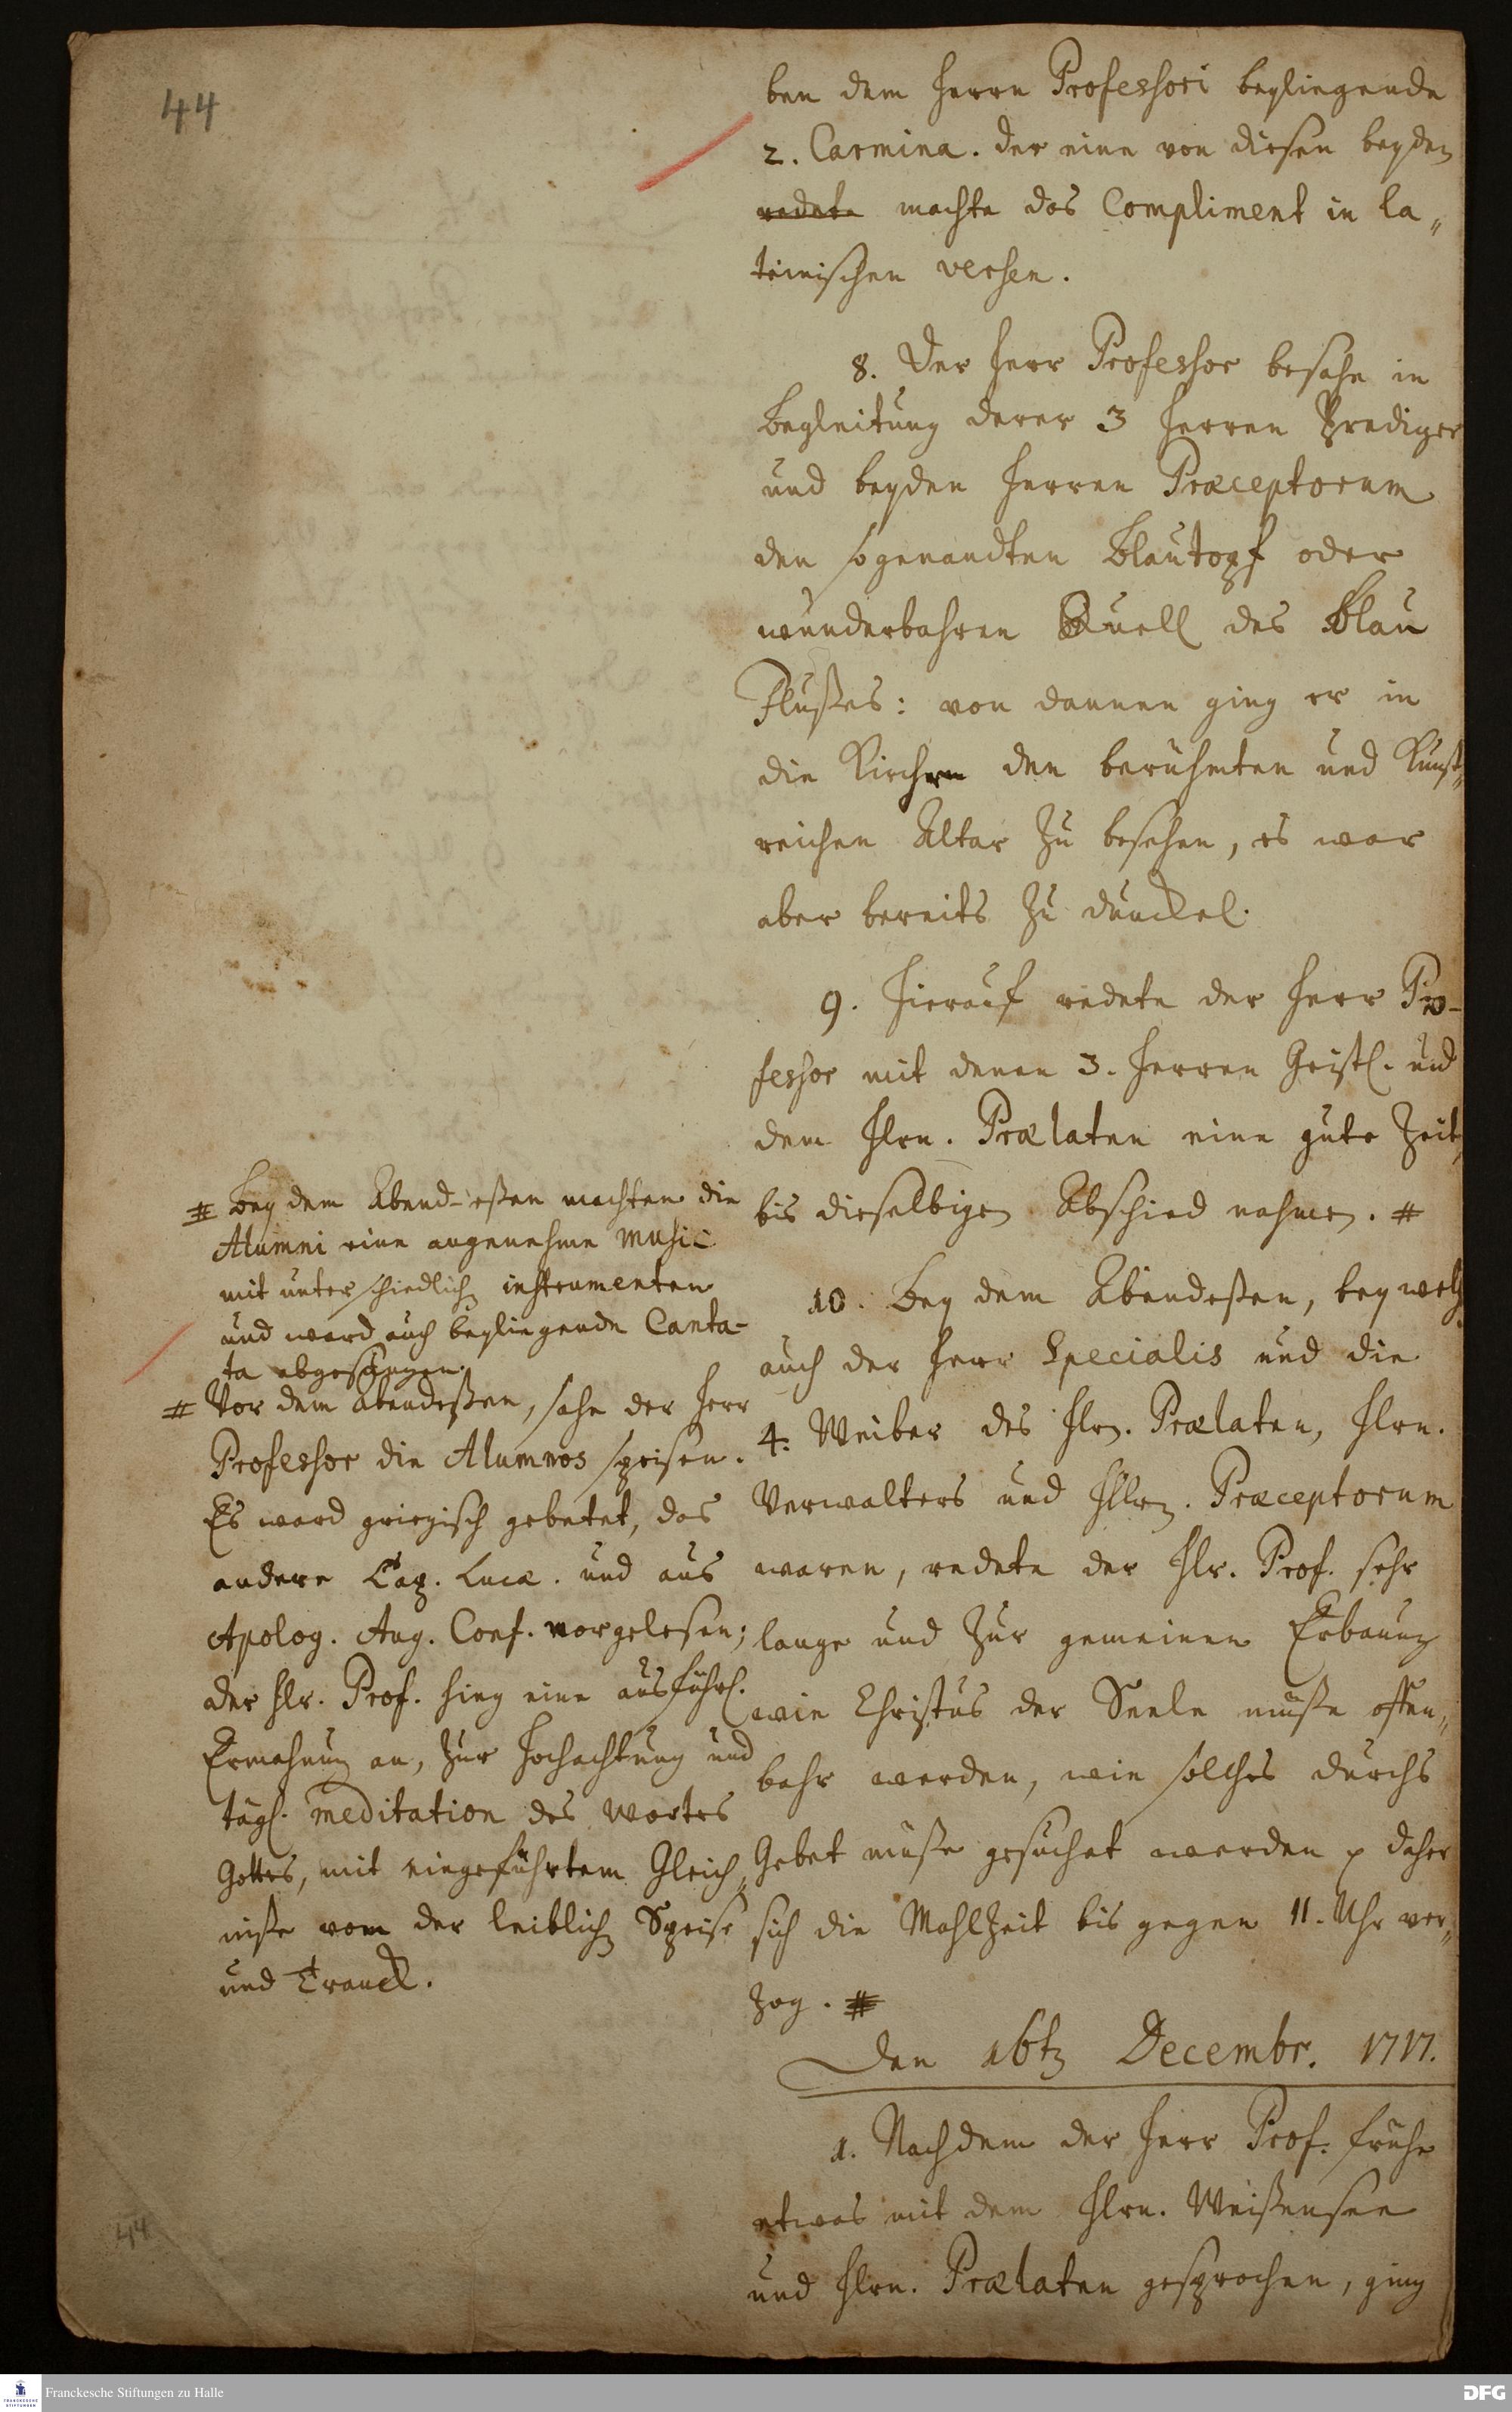 44
ben dem Herrn Professori beyliegende
2. Carmina. der eine von diesen beyden
redete machte das Compliment in la„
teinischen versen.
8. Der Herr Professor besahe in
Begleitung derer 3 Herren Prediger
und beyden Herren Præceptorum
den sogenandten Blautopf oder
wunderbahren Quell des Blau
Flußes: von dannen ging er in
die Kirchen den berühmten und Kunst„
reichen Altar zu besehen, es war
aber bereits zu dunckel.
9. Hierauf redete der Herr Pro-
fessor mit denen 3. Herren Geistl. und
dem Hrn. Prælaten eine gute Zeit,
bis dieselbigen Abschied nahmen. #
10. Bey dem Abendeßen, bey welch.
auch der Herr Specialis und die
4. Weiber des Hrn. Prælaten, Hrn.
Verwalters und HHrn. Præceptorum
waren, redete der Hr. Prof. sehr
lange und zur gemeinen Erbauung
wie Christus der Seele müße offen„
bahr werden, wie solches durchs
Gebet müße gesuchet werden p daher
sich die Mahlzeit bis gegen 11. Uhr ver„
zog. #
# Bey dem Abend-eßen machten die
Alumni eine angenehme Music
mit unterschiedlichen instrumenten
und ward auch beyliegende Canta-
ta abgesungen.
# Vor dem Abendeßen, sahe der Herr
Professor die Alumnos speisen.
Es ward griegisch gebetet, das
andere Cap. Lucæ. und aus
Apolog. Aug. Conf. vorgelesen;
der Hr. Prof. hing eine ausführl.
Ermahnung an, zur Hochachtung und
tägl. meditation des Wortes
Gottes, mit eingeführtem Gleich„
niße von der leiblichen Speise
und Tranck.
Den 16ten Decembr. 1717.
1. Nachdem der Herr Prof. frühe
etwas mit dem Hrn. Weißensee
und Hrn. Prælaten gesprochen, ging
44
Franckesche Stiftungen zu Halle
DFG